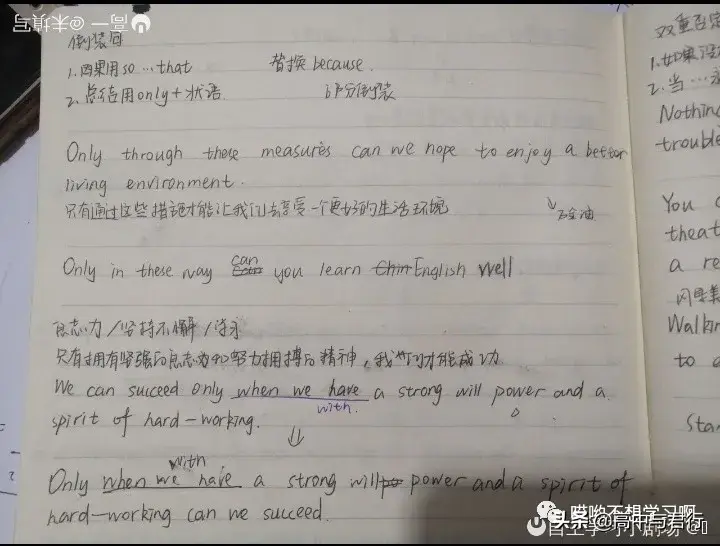 高一@未填写
倒装句
1.因果用so…that 替换because.
2.总结用only+状语 部分倒装
Only through these measures can we hope to enjoy a better
living environment.
只有通过这些措施才能让我们去享受一个更好的生活环境
Only in these way can you learn English well
只有拥有坚强的意志力和努力拼搏的精神,我们才能成功
We can succeed only when we have a strong will power and a
with.
spirit of hard-working.
with
Only when we have a strong will power and a spirit of
hard-working can we succeed.
双重否定
1.如果没
2.当…
Nothin
trouble
You
theat
a re
Walkin
to
Star
哎哟不想学习啊
头条@高中有君街